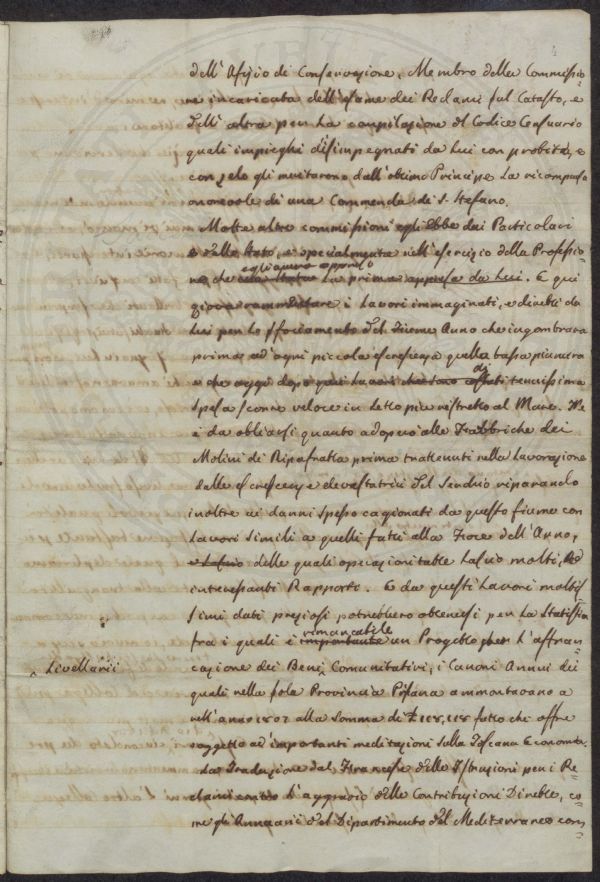 dell' Afizio di Conservazione, Membro della Commissio=
ne incaricata dell'esame dei Reclami sul Catasto, e
dell' altra per la compilazione del Codice Censuario
quali impieghi disimpegnati da Lui con probità, e
con zelo gli meritarono dall'ottimo Principe La ricompensa
onorevole di una Commenda di S. Stefano.
Molte altre commissioni egli ebbe dai Particolari
e dallo Stato, e specialmente nell'esercizio della Professio=
ne che
La prima appresa da Lui. E quì
giova rammentare i Lavori immaginati, e diretti da
Lui per lo sfociamento del fiume Arno che ingombrava
prima ad ogni piccola escrescenza quella bassa pianura
e che oggi dopo quei Lavori con tenuissima
spesa scorre veloce in Letto più ristretto al Mare. Ne
è da obliarsi quanto adoperò alle Fabbriche dei
Molini di Ripafratta prima trattenuti nella Lavorazione
dalle escrescenze devastatrici del Serchio riparando
inoltre ai danni spesso cagionati da questo fiume con
Lavori simili a quelli fatti alla Foce dell'Arno,
delle quali operazioni tutte Lasciò molti, ed
interessanti Rapporti. E da questi Lavori moltis
simi dati preziosi potrebbero ottenersi per La Statistica
fra i quali è rimarcabile un Progetto per l'affran=
cazione dei Beni Comunitativi, i Canoni Annui dei
^ Livellarii
quali nella sola Provincia Pisana ammontavano a
nell'anno 1802 alla somma di £ 118,118 fatto che offre
soggetto ad importanti meditazioni sulla Toscana Economia.
La Traduzione dal Francese delle Istruzioni per i Re
clami contro l'aggravio delle Contribuzioni Dirette, co=
me gli Annuarii del Dipartimento del Mediterraneo com=